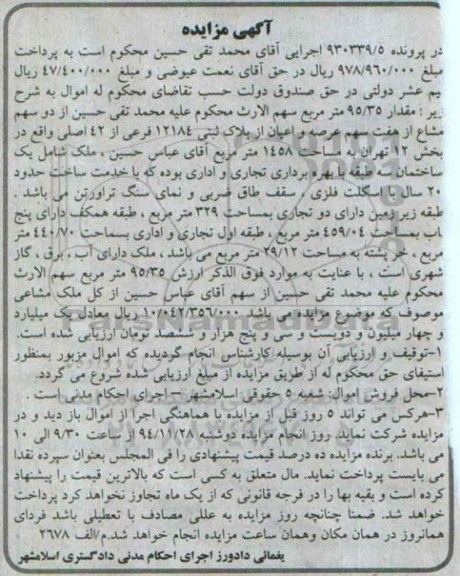 آگهی مزایده
در پرونده ۹۳۰۳۳۹/۵ اجرایی آقای محمد تقی حسین محکوم است به پرداخت
مبلغ ۹۷۸/۹۶۰/۰۰۰ ریال در حق آقای نعمت عیوضی و مبلغ ۴۷/۴۰۰/۰۰۰ ریال
نیم عشر دولتی در حق صندوق دولت حسب تقاضای محکوم له اموال به شرح
زیر : مقدار ۹۵/۳۵ متر مربع سهم الارث محکوم علیه محمد تقی حسین از دو سهم
مشاع از هفت سهم عرصه و اعیان از پلاک ثبتی ۱۲۱۸۴ فرعی از ۴۲ اصلی واقع در
بخش ۱۲ تهران به مساحت ۱۴۵۸ متر مربع آقای عباس حسین ، ملک شامل یک
ساختمان سه طبقه با بهره برداری تجاری و اداری بوده که با خدمت ساخت حدود
۲۰ سال با اسکلت فلزی ، سقف طاق ضربی و نمای سنگ تراورتن می باشد .
طبقه زیر زمین دارای دو تجاری بمساحت ۳۲۹ متر مربع ، طبقه همکف دارای پنج
باب بمساحت ۴۵۹/۰۴ متر مربع ، طبقه اول تجاری و اداری بسماحت ۴۴۰/۷۰ متر
مربع ، خر پشته به مساحت ۲۹/۱۲ متر مربع می باشد ، ملک دارای آب ، برق ، گاز
شهری است ، با عنایت به موارد فوق الذکر ارزش ۹۵/۳۵ متر مربع سهم الارث
محکوم علیه محمد تقی حسین از سهم آقای عباس حسین از کل ملک مشاعی
موصوف که موضوع مزایده می باشد ۱۰/۰۴۲/۳۵۶/۰۰۰ ریال معادل یک میلیارد
و چهار میلیون و دویست و سی و پنج هزار و ششصد تومان ارزیابی شده است.
۱-توقیف و ارزیابی آن بوسیله کارشناس انجام گردیده که اموال مزبور بمنظور
استیفای حق محکوم له از طریق مزایده از مبلغ ارزیابی شده شروع می گردد.
۲-محل فروش اموال: شعبه ۵ حقوقی اسلامشهر – اجرای احکام مدنی است .
۳-هرکس می تواند ۵ روز قبل از مزایده با هماهنگی اجرا از اموال باز دید و در
مزایده شرکت نماید. روز انجام مزایده دوشنبه ۹۴/۱۱/۲۸ از ساعت ۹/۳۰ الی ۱۰
می باشد. برنده مزایده ده درصد قیمت پیشنهادی را فی المجلس بعنوان سپرده نقدا
می بایست پرداخت نماید. مال متعلق به کسی است که بالاترین قیمت را پیشنهاد
کرده است و بقیه بها را در فرجه قانونی که از یک ماه تجاوز نخواهد کرد پرداخت
خواهد شد. ضمنا چنانچه روز مزایده به عللی مصادف با تعطیلی باشد فردای
همانروز در همان مکان وهمان ساعت مزایده انجام خواهد شد.م/الف ۲۶۷۸
یغمائی دادورز اجرای احکام مدنی دادگستری اسلامشهر